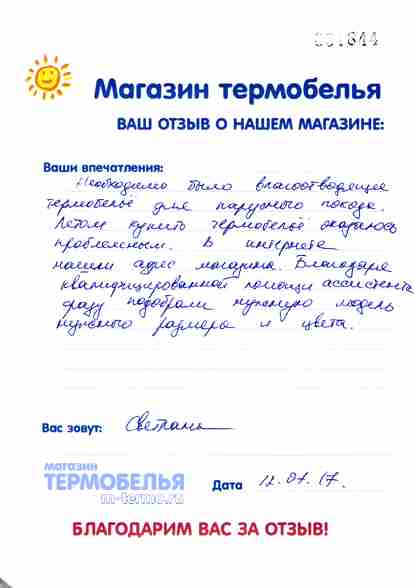 001644
Магазин термобелья
ВАШ ОТЗЫВ О НАШЕМ МАГАЗИНЕ:
Ваши впечатления:
Необходимо было влагоотводящее
термобельё для парусного похода.
Летом купить термобельё оказалось
проблемным. В интернете
нашли адрес магазина. Благодаря
квалифицированной помощи ассистента
сразу подобрали нужную модель
нужного размера и цвета.
Вас зовут: Светлана
магазин
ТЕРМОБЕЛЬЯ
m-termo.ru
Дата 12.07.17.
БЛАГОДАРИМ ВАС ЗА ОТЗЫВ!